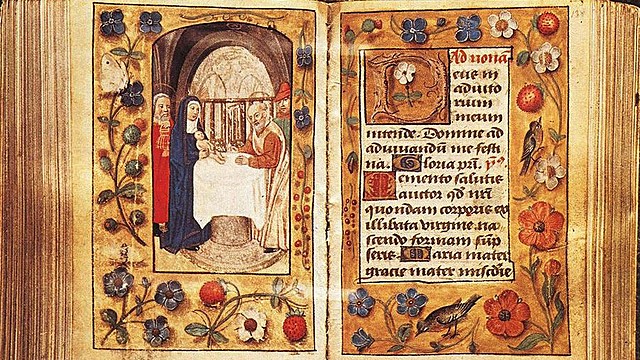 Ad nona
eus in
adiuto
rium
meum
intende. Domine ad
adiuvandum me festi
na. Gloria pri. ps.
emento salutis
auctor qd nri
quondam corporis ex
illibata virgine na
scendo formam sup
seris. Maria mater
gracie mater miscdie